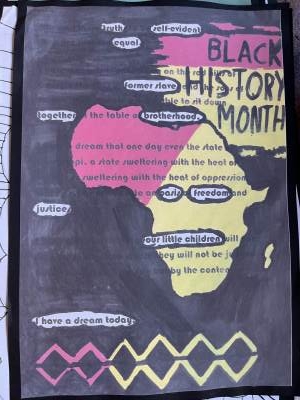 truth self-evident
equal
BLACK
on the red hills of
HISTORY
former slave and the
able to sit down
MONTH
together at the table of brotherhood.
dream that one day even the state
pi, a state sweltering with the heat of
sweltering with the heat of oppression
an oasis of freedom and
justice
our little children will
they will not be ju
by the conten
I have a dream today